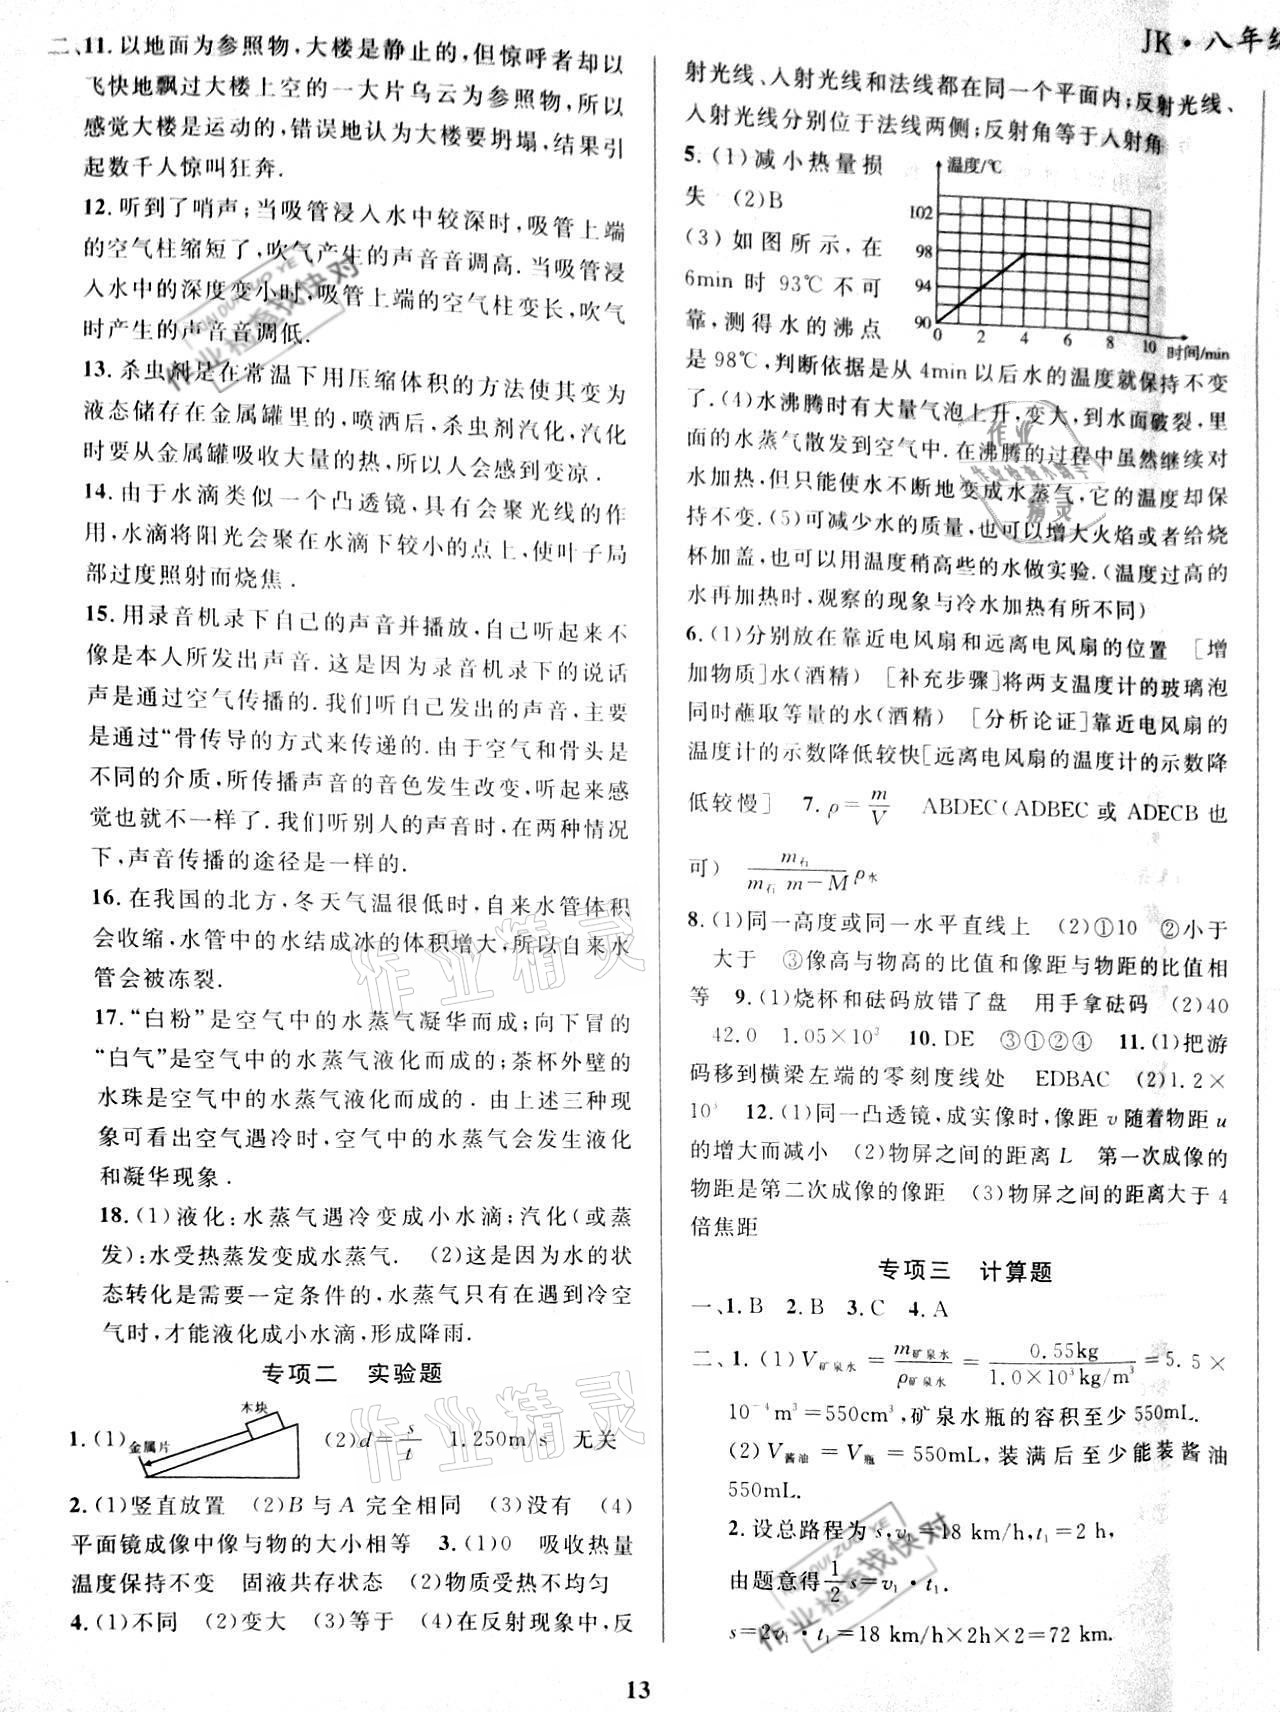 二、11.以地面为参照物,大楼是静止的,但惊呼者却以
飞快地飘过大楼上空的一大片乌云为参照物,所以
感觉大楼是运动的,错误地认为大楼要坍塌,结果引
起数千人惊叫狂奔.
12.听到了哨声;当吸管浸入水中较深时,吸管上端
的空气柱缩短了,吹气产生的声音音调高.当吸管浸
入水中的深度变小时,吸管上端的空气柱变长,吹气
时产生的声音音调低.
13.杀虫剂是在常温下用压缩体积的方法使其变为
液态储存在金属罐里的,喷洒后,杀虫剂汽化,汽化
时要从金属罐吸收大量的热,所以人会感到变凉.
14.由于水滴类似一个凸透镜,具有会聚光线的作
用,水滴将阳光会聚在水滴下较小的点上,使叶子局
部过度照射而烧焦.
15.用录音机录下自己的声音并播放,自己听起来不
像是本人所发出声音.这是因为录音机录下的说话
声是通过空气传播的.我们听自己发出的声音,主要
是通过“骨传导的方式来传递的.由于空气和骨头是
不同的介质,所传播声音的音色发生改变,听起来感
觉也就不一样了.我们听别人的声音时,在两种情况
下,声音传播的途径是一样的.
16.在我国的北方,冬天气温很低时,自来水管体积
会收缩,水管中的水结成冰的体积增大,所以自来水
管会被冻裂.
17.“白粉”是空气中的水蒸气凝华而成;向下冒的
“白气”是空气中的水蒸气液化而成的;茶杯外壁的
水珠是空气中的水蒸气液化而成的.由上述三种现
象可看出空气遇冷时,空气中的水蒸气会发生液化
和凝华现象.
18.(1)液化:水蒸气遇冷变成小水滴;汽化(或蒸
发):水受热蒸发变成水蒸气. (2)这是因为水的状
态转化是需要一定条件的,水蒸气只有在遇到冷空
气时,才能液化成小水滴,形成降雨.
专项二 实验题
木块
金属片
1.(1) (2)d=s/t 1.250m/s 无关
2.(1)竖直放置 (2)B与A完全相同 (3)没有 (4)
平面镜成像中像与物的大小相等 3.(1)0 吸收热量
温度保持不变 固液共存状态 (2)物质受热不均匀
4.(1)不同 (2)变大 (3)等于 (4)在反射现象中,反
JK·八年级
射光线、入射光线和法线都在同一个平面内;反射光线、
入射光线分别位于法线两侧;反射角等于入射角
5.(1)减小热量损
失 (2)B
(3)如图所示,在
6min时93℃不可
靠,测得水的沸点
温度/℃
102
98
94
90
0 2 4 6 8 10 时间/min
是98℃,判断依据是从4min以后水的温度就保持不变
了.(4)水沸腾时有大量气泡上升,变大,到水面破裂,里
面的水蒸气散发到空气中.在沸腾的过程中虽然继续对
水加热,但只能使水不断地变成水蒸气,它的温度却保
持不变.(5)可减少水的质量,也可以增大火焰或者给烧
杯加盖,也可以用温度稍高些的水做实验.(温度过高的
水再加热时,观察的现象与冷水加热有所不同)
6.(1)分别放在靠近电风扇和远离电风扇的位置 [增
加物质]水(酒精) [补充步骤]将两支温度计的玻璃泡
同时蘸取等量的水(酒精) [分析论证]靠近电风扇的
温度计的示数降低较快[远离电风扇的温度计的示数降
低较慢] 7.ρ=m/V ABDEC(ADBEC或ADECB也
可) m石/(m石 m-M)ρ水
8.(1)同一高度或同一水平直线上 (2)①10 ②小于
大于 ③像高与物高的比值和像距与物距的比值相
等 9.(1)烧杯和砝码放错了盘 用手拿砝码 (2)40
42.0 1.05×10³ 10.DE ③①②④ 11.(1)把游
码移到横梁左端的零刻度线处 EDBAC (2)1.2×
10³ 12.(1)同一凸透镜,成实像时,像距v随着物距u
的增大而减小 (2)物屏之间的距离L 第一次成像的
物距是第二次成像的像距 (3)物屏之间的距离大于4
倍焦距
专项三 计算题
一、1.B 2.B 3.C 4.A
二、1.(1)V矿泉水=m矿泉水/ρ矿泉水=0.55kg/1.0×10³kg/m³=5.5×
10⁻⁴m³=550cm³,矿泉水瓶的容积至少550mL.
(2)V酱油=V瓶=550mL,装满后至少能装酱油
550mL.
2.设总路程为s,v₁=18 km/h,t₁=2 h,
由题意得1/2 s=v₁·t₁.
s=2v₁·t₁=18 km/h×2h×2=72 km.
13